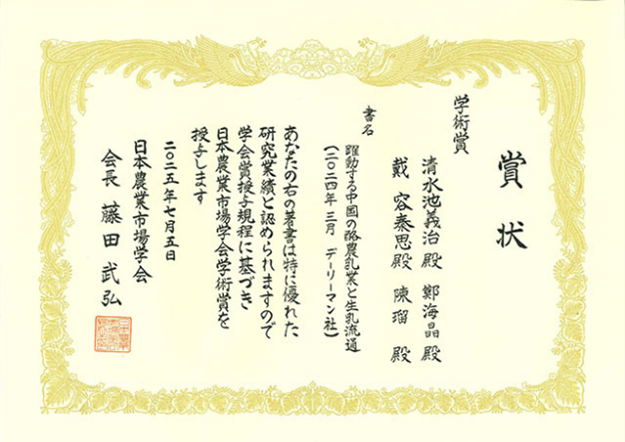 賞状
学術賞
清水池義治殿 鄭海晶殿
戴容秦思殿 陳瑠殿
書名
躍動する中国の酪農乳業と生乳流通
(二〇二四年三月 デーリーマン社)
あなたの右の著書は特に優れた
研究業績と認められますので
学会賞授与規程に基づき
日本農業市場学会学術賞を
授与します
二〇二五年七月五日
日本農業市場学会
会長 藤田武弘